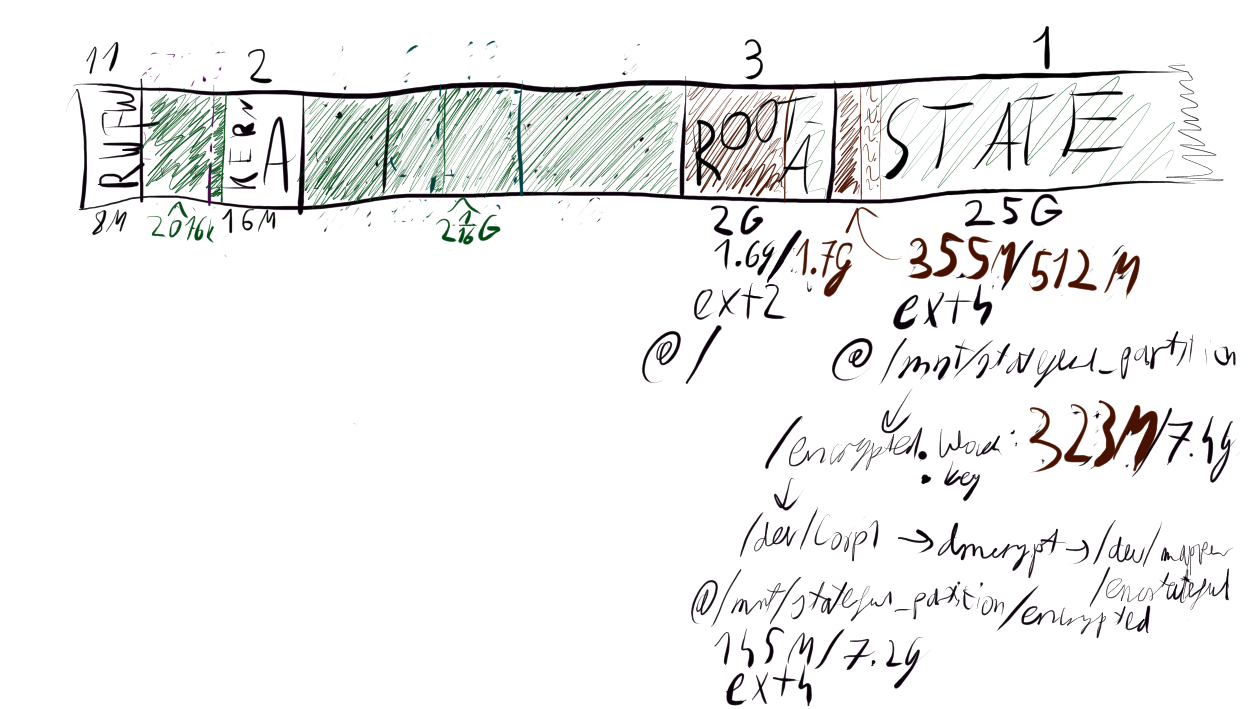 11 2 3 1
RWFW KERN A ROOT A STATE
8M 2016k 16M 2 1/16 G 2G 25G
1.6g/1.7g 355M/512M
ext2 ext4
@/ @/mnt/stateful_partition
/encrypted.block: 323M/7.4g
.key
/dev/loop1 → dmcrypt → /dev/mapper
/encstateful
@/mnt/stateful_partition/encrypted
145M/7.2g
ext4